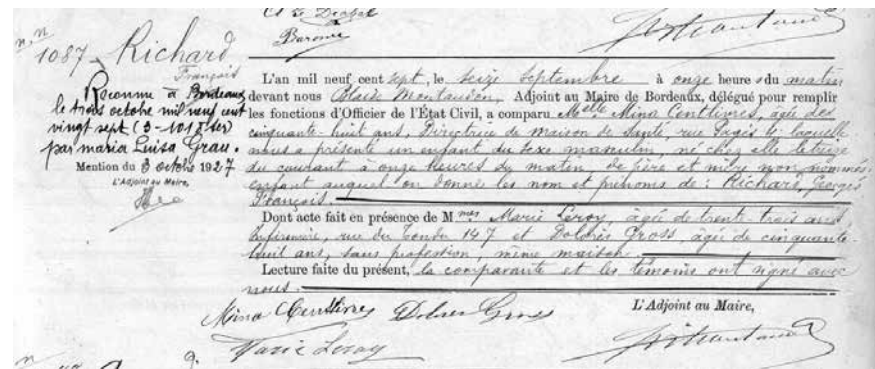 Baronie
n.n
1087 Richard
François
Reconnu à Bordeaux
le trois octobre mil neuf cent
vingt sept (3-1013 ter)
par maria Luisa Grau.
Mention du 3 octobre 1927
L'Adjoint au Maire,
L'an mil neuf cent sept, le seize Septembre à onze heures du matin
devant nous Blaise Montaudon, Adjoint au Maire de Bordeaux, délégué pour remplir
les fonctions d'Officier de l'État Civil, a comparu Melle Mina Centlivres, âgée de
cinquante huit ans, Directrice de maison de Santé, rue Pagès laquelle
nous a présenté un enfant du sexe masculin, né chez elle le treize
du courant à onze heures du matin, de père et mère non nommés,
enfant auquel on donne les nom et prénoms de : Richard, Georges
François.
Dont acte fait en présence de Mmes Marie Leroy, âgée de trente-trois ans
Infirmière, rue du Tondu 147 et Dolorès Gross, âgée de cinquante
huit ans, sans profession, même maison.
Lecture faite du présent, la comparante et les témoins ont signé avec
nous.
L'Adjoint au Maire,
Mina Centlivres Dolores Gross
Marie Leroy
n